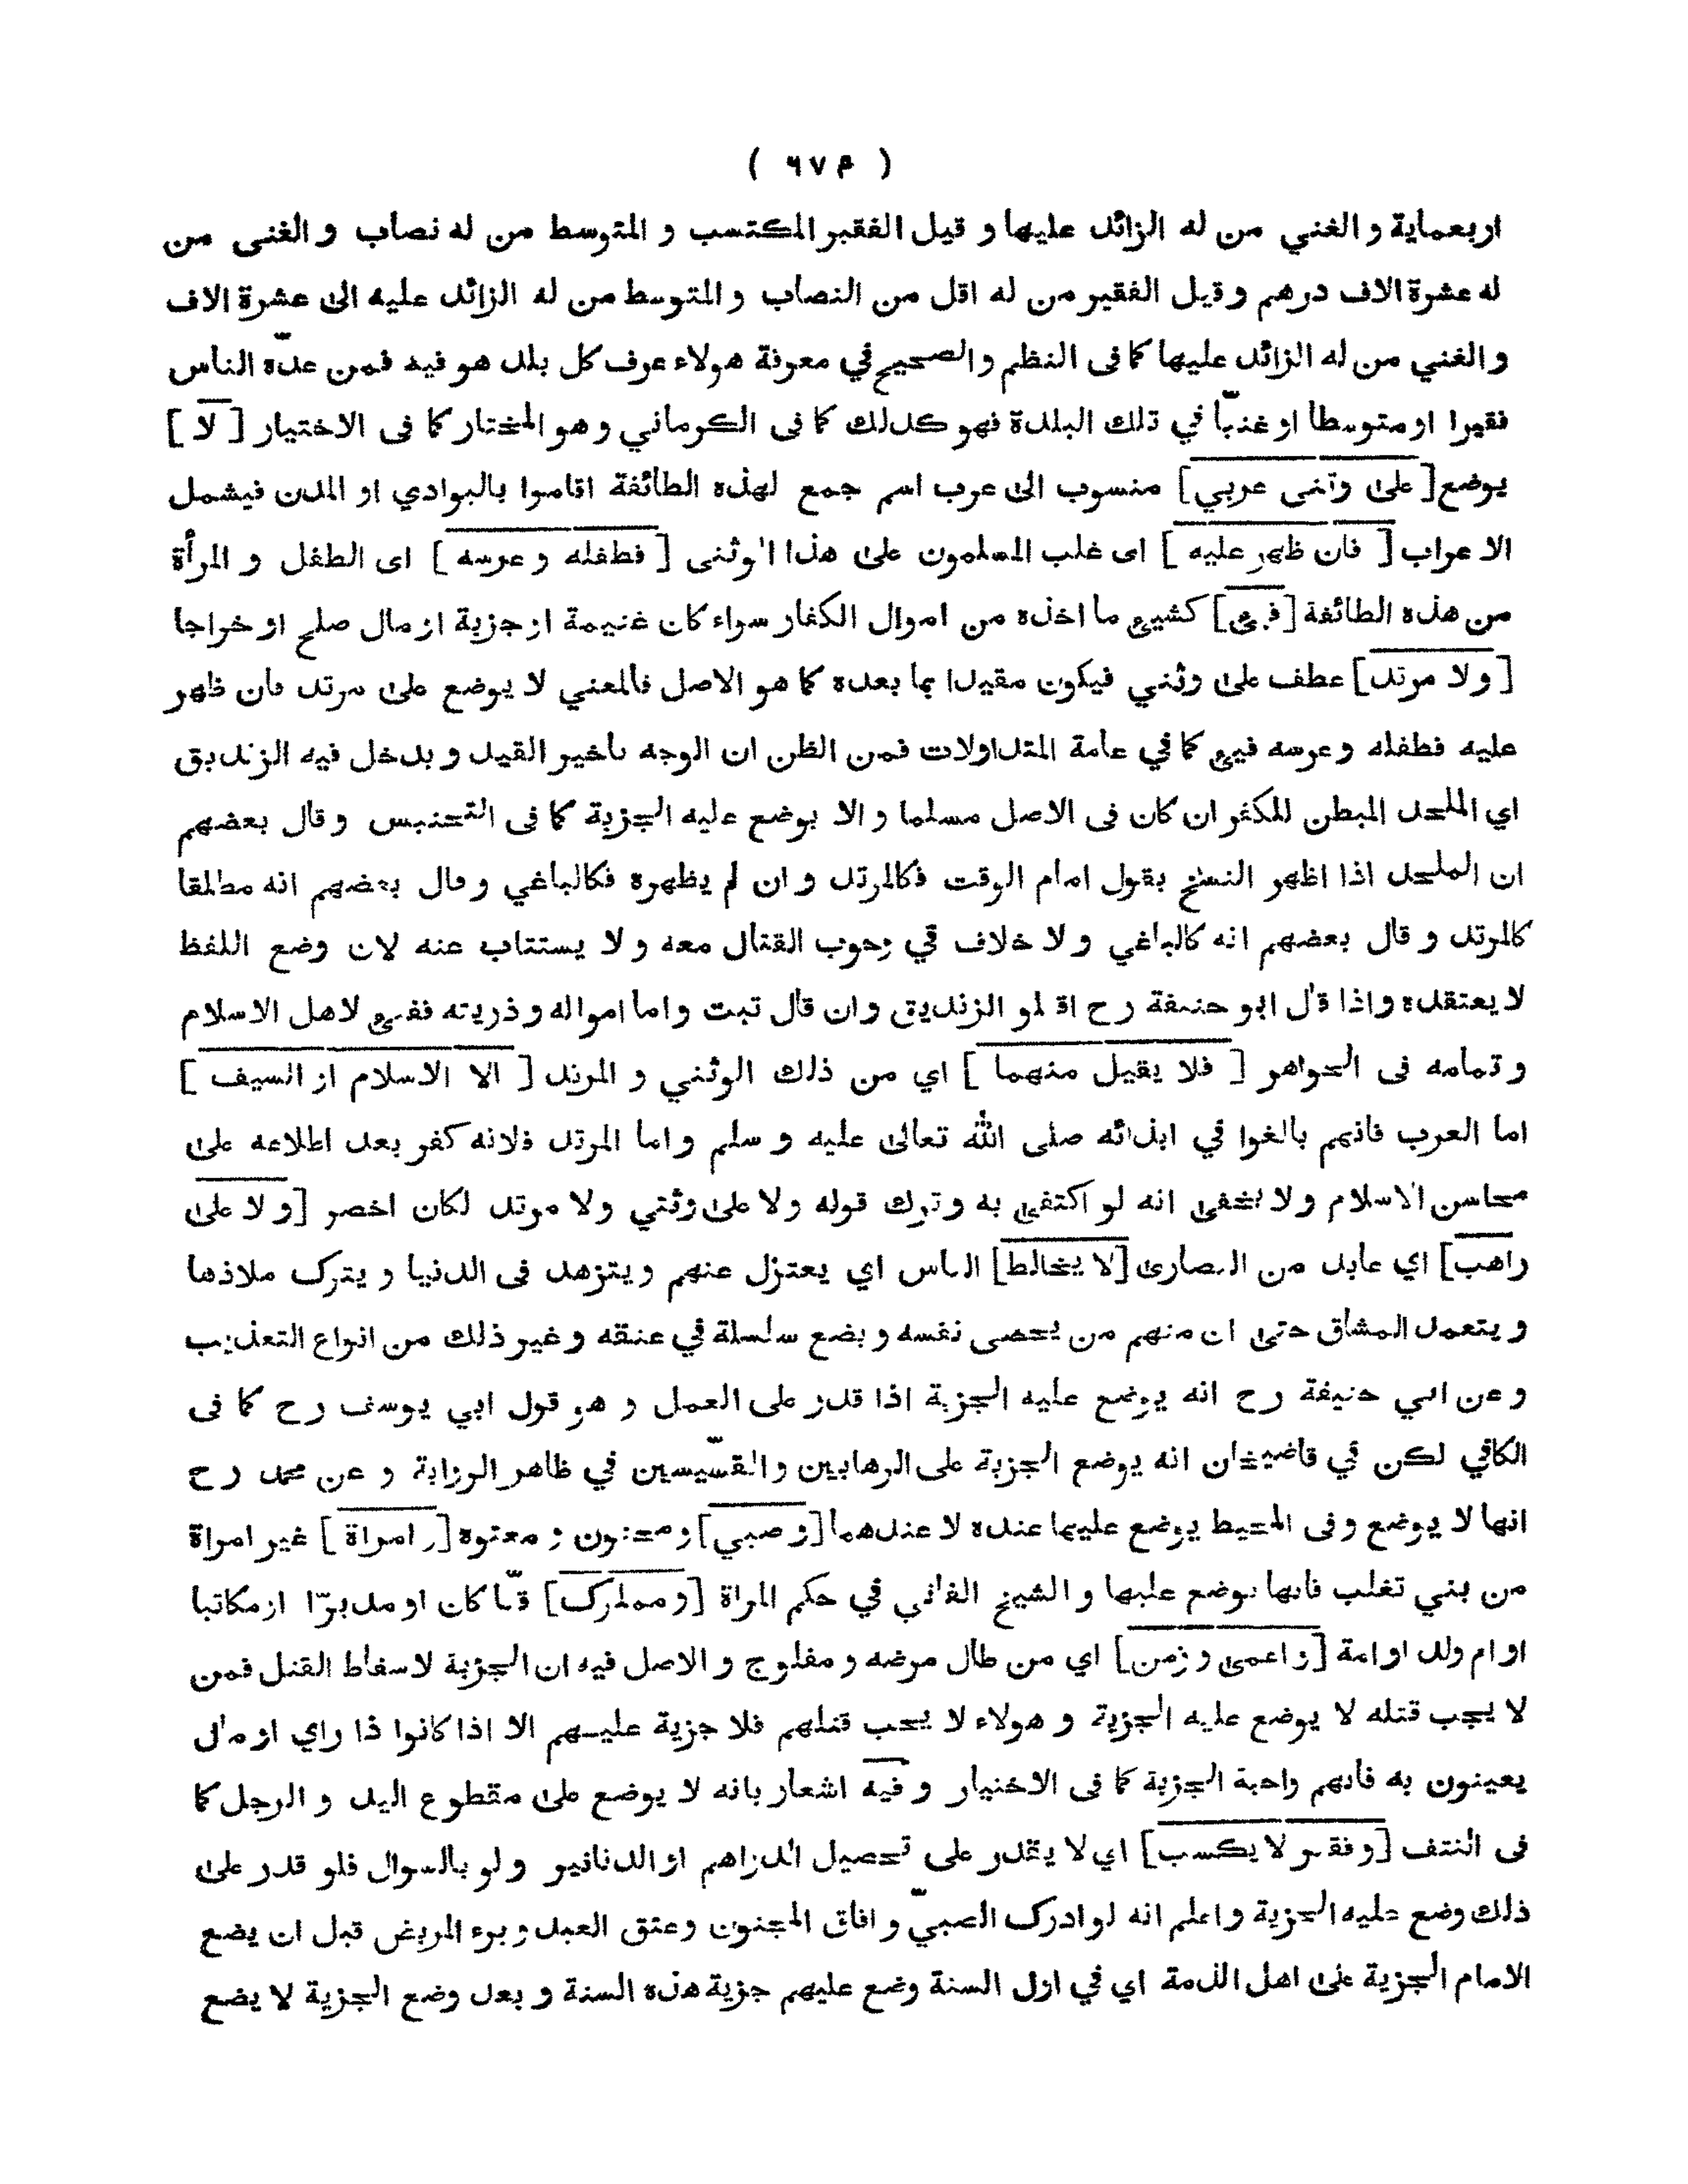 ( ٦٧٤ )
اربعماية و الغني من له الزائد عليها و قيل الفقير المكتسب و المتوسط من له نصاب و الغنى من
له عشرة الاف درهم و قيل الفقير من له اقل من النصاب و المتوسط من له الزائد عليه الى عشرة الاف
و الغني من له الزائد عليها كما فى النظم و الصحيح في معرفة هولاء عرف كل بلد هو فيه فمن عدّه الناس
فقيرا او متوسطا او غنيّا في تلك البلدة فهو كذلك كما فى الكرماني و هو المختار كما فى الاختيار [ لا ]
يوضع [ على وثنى عربي ] منسوب الى عرب اسم جمع لهذه الطائفة اقاموا بالبوادي او المدن فيشمل
الاعراب [ فان ظهر عليه ] اى غلب المسلمون على هذا الوثنى [ فطفله و عرسه ] اى الطفل و المرأة
من هذه الطائفة [ فيئ ] كشيئ ما اخذه من اموال الكفار سواء كان غنيمة او جزية او مال صلح او خراجا
[ و لا مرتد ] عطف على وثني فيكون مقيدا بما بعده كما هو الاصل فالمعني لا يوضع على مرتد فان ظهر
عليه فطفله و عرسه فيئ كما في عامة المتداولات فمن الظن ان الوجه تاخير القيد و يدخل فيه الزنديق
اي الملحد المبطن للكفر ان كان فى الاصل مسلما و الا يوضع عليه الجزية كما فى التجنيس و قال بعضهم
ان الملحد اذا اظهر النسخ بقول امام الوقت فكالمرتد و ان لم يظهره فكالباغي و قال بعضهم انه مطلقا
كالمرتد و قال بعضهم انه كالباغي و لا خلاف في وجوب القتال معه و لا يستتاب عنه لان وضع اللفظ
لا يعتقده و اذا قال ابو حنيفة رح اقتلو الزنديق و ان قال تبت و اما امواله و ذريته ففيئ لاهل الاسلام
و تمامه فى الجواهر [ فلا يقبل منهما ] اي من ذلك الوثني و المرتد [ الا الاسلام او السيف ]
اما العرب فانهم بالغوا في ايذائه صلى الله تعالى عليه و سلم و اما المرتد فلانه كفر بعد اطلاعه على
محاسن الاسلام و لا يخفى انه لو اكتفى به و ترك قوله و لا على وثني ولا مرتد لكان اخصر [ و لا على
راهب ] اي عابد من النصارى [ لا يخالط ] الناس اي يعتزل عنهم و يتزهد فى الدنيا و يترك ملاذها
و يتعمد المشاق حتى ان منهم من يخصى نفسه و يضع سلسلة في عنقه و غير ذلك من انواع التعذيب
و عن ابي حنيفة رح انه يوضع عليه الجزية اذا قدر على العمل و هو قول ابي يوسف رح كما فى
الكافي لكن في قاضيخان انه يوضع الجزية على الرهابين و القسّيسين في ظاهر الرواية و عن محمد رح
انها لا يوضع و فى المحيط يوضع عليهما عنده لا عندهما [ و صبي ] و مجنون و معتوه [ و امراة ] غير امراة
من بني تغلب فانها يوضع عليها و الشيخ الفاني في حكم المراة [ و مملوك ] قنّا كان او مدبرّا او مكاتبا
او ام ولد او امة [ و اعمى و زمن ] اي من طال مرضه و مفلوج و الاصل فيه ان الجزية لاسقاط القتل فمن
لا يجب قتله لا يوضع عليه الجزية و هولاء لا يجب قتلهم فلا جزية عليهم الا اذا كانوا ذا راي او مال
يعينون به فانهم واجبة الجزية كما فى الاختيار و فيه اشعار بانه لا يوضع على مقطوع اليد و الرجل كما
فى النتف [ و فقير لا يكسب ] اي لا يقدر على تحصيل الدراهم او الدنانير و لو بالسوال فلو قدر على
ذلك وضع عليه الجزية و اعلم انه لو ادرك الصبيّ و افاق المجنون و عتق العبد و برء المريض قبل ان يضع
الامام الجزية على اهل الذمة اي في اول السنة وضع عليهم جزية هذه السنة و بعد وضع الجزية لا يضع